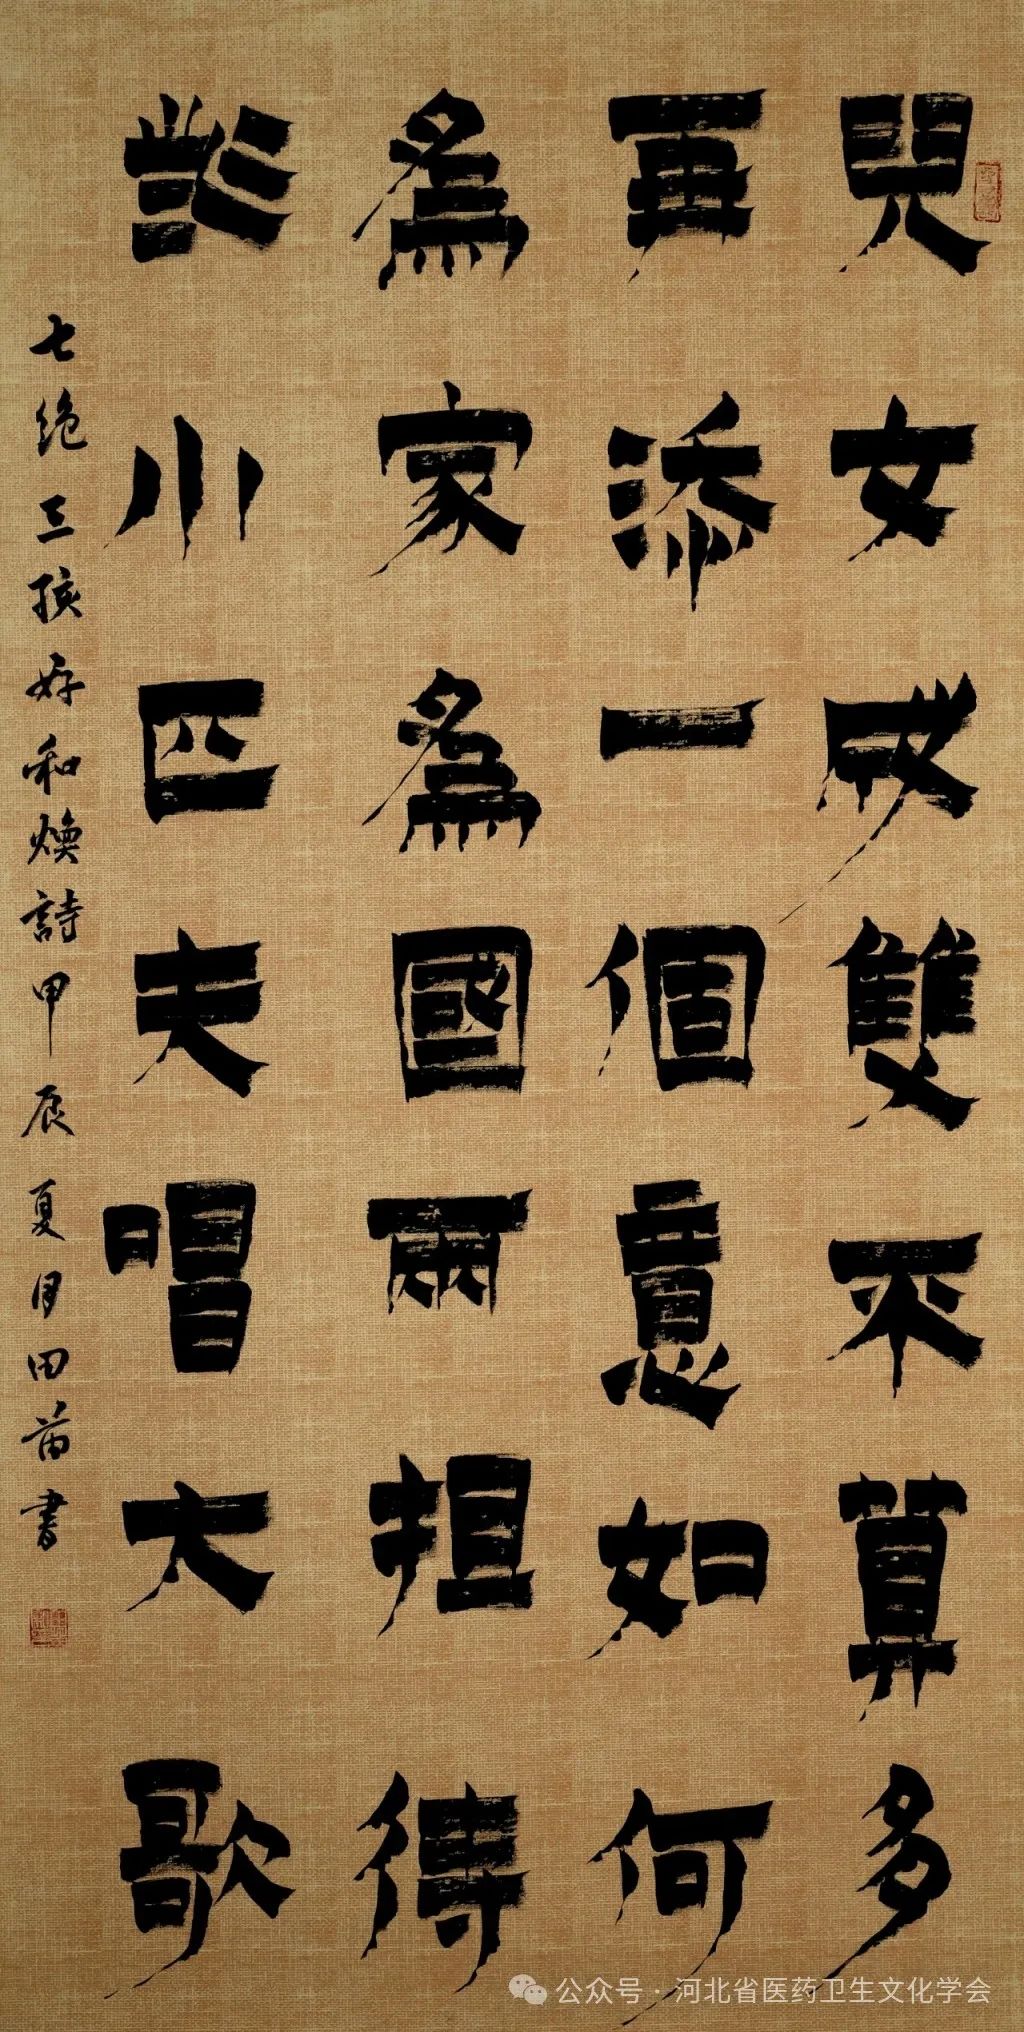 兒女成雙不算多
再添一個意如何
爲家爲國兩担得
些小匹夫唱大歌
七绝三孩好和焕詩甲辰夏月田苗書
公众号·河北省医药卫生文化学会